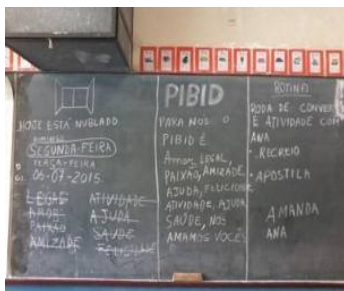 HOJE ESTÁ NUBLADO
DOMINGO
SEGUNDA-FEIRA
TERÇA-FEIRA
06-07-2015
LEGAL ATIVIDADE
AMOR AJUDA
PAIXÃO SAUDE
AMIZADE FELICIDADE
PIBID
PARA NÓS O
PIBID É
Amor, LEGAL,
PAIXÃO, AMIZADE,
AJUDA, FELICIDADE
ATIVIDADE, AJUDA,
SAÚDE, NÓS
AMAMOS VOCÊS
ROTINA
RODA DE CONVERSA
E ATIVIDADE COM
ANA
• RECREIO
• APOSTILA
AMANDA
ANA